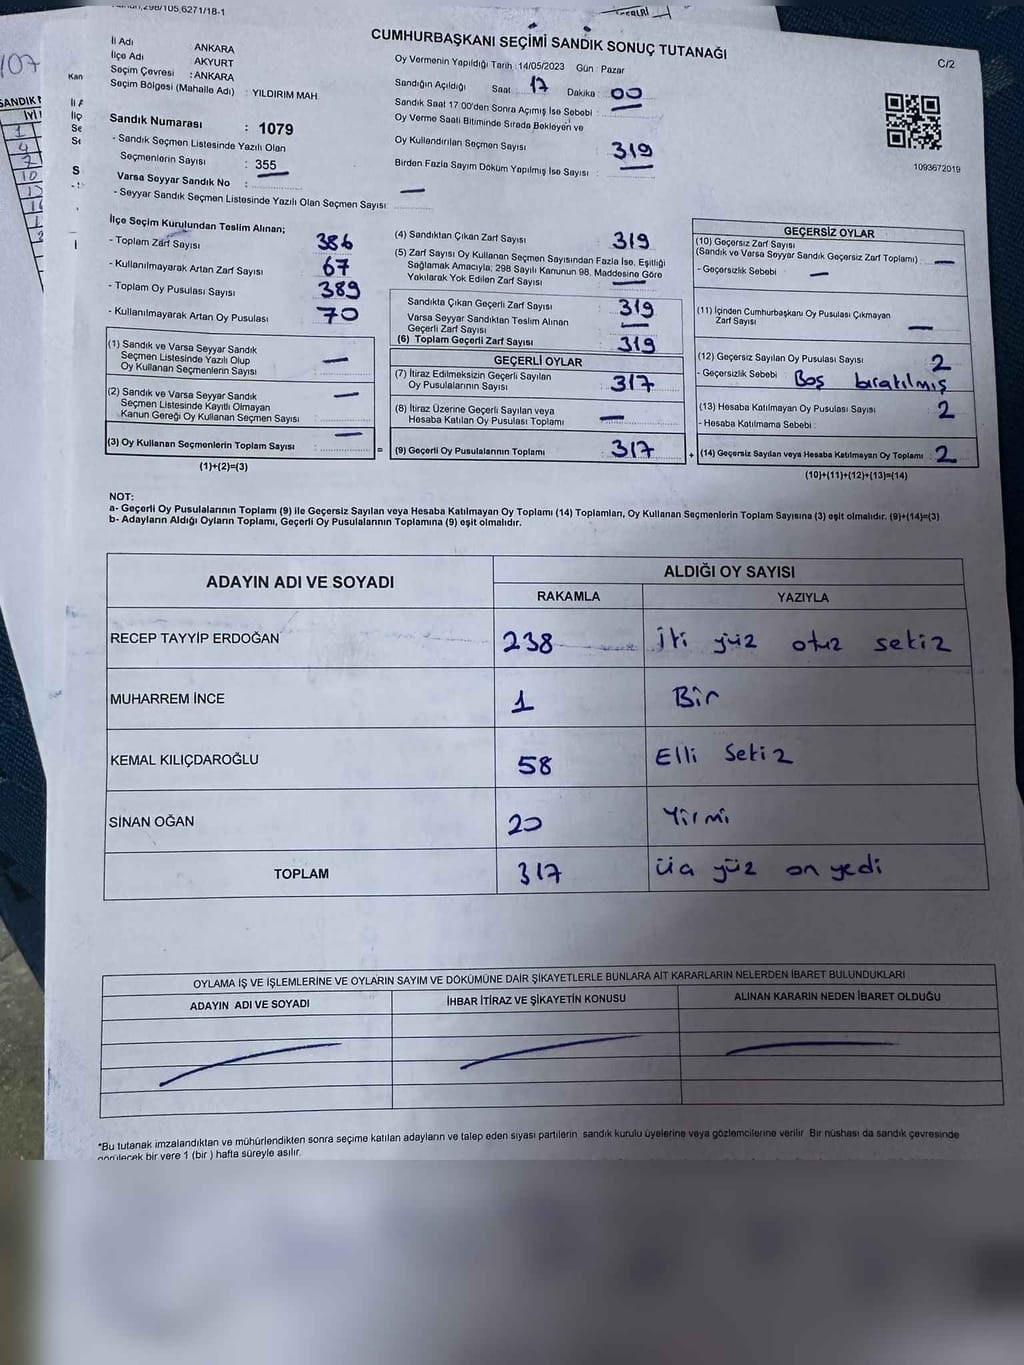 298/105,6271/18-1
CUMHURBAŞKANI SEÇİMİ SANDIK SONUÇ TUTANAĞI
C/2
İl Adı ANKARA
İlçe Adı AKYURT
Seçim Çevresi : ANKARA
Seçim Bölgesi (Mahalle Adı) : YILDIRIM MAH.
Sandık Numarası : 1079
- Sandık Seçmen Listesinde Yazılı Olan
Seçmenlerin Sayısı : 355
Varsa Seyyar Sandık No :
- Seyyar Sandık Seçmen Listesinde Yazılı Olan Seçmen Sayısı —
Oy Vermenin Yapıldığı Tarih : 14/05/2023 Gün : Pazar
Sandığın Açıldığı Saat 17 Dakika : 00
Sandık Saat 17.00'den Sonra Açımış İse Sebebi : —
Oy Verme Saati Bitiminde Sırada Bekleyen ve
Oy Kullandırılan Seçmen Sayısı 319
Birden Fazla Sayım Döküm Yapılmış İse Sayısı : —
1093672019
İlçe Seçim Kurulundan Teslim Alınan;
- Toplam Zarf Sayısı 386
- Kullanılmayarak Artan Zarf Sayısı 67
- Toplam Oy Pusulası Sayısı 389
- Kullanılmayarak Artan Oy Pusulası 70
(1) Sandık ve Varsa Seyyar Sandık
Seçmen Listesinde Yazılı Olup
Oy Kullanan Seçmenlerin Sayısı —
(2) Sandık ve Varsa Seyyar Sandık
Seçmen Listesinde Kayıtlı Olmayan
Kanun Gereği Oy Kullanan Seçmen Sayısı —
(3) Oy Kullanan Seçmenlerin Toplam Sayısı —
(1)+(2)=(3)
(4) Sandıktan Çıkan Zarf Sayısı 319
(5) Zarf Sayısı Oy Kullanan Seçmen Sayısından Fazla İse, Eşitliği
Sağlamak Amacıyla; 298 Sayılı Kanunun 98. Maddesine Göre
Yakılarak Yok Edilen Zarf Sayısı —
Sandıkta Çıkan Geçerli Zarf Sayısı 319
Varsa Seyyar Sandıktan Teslim Alınan
Geçerli Zarf Sayısı —
(6) Toplam Geçerli Zarf Sayısı 319
GEÇERLİ OYLAR
(7) İtiraz Edilmeksizin Geçerli Sayılan
Oy Pusulalarının Sayısı 317
(8) İtiraz Üzerine Geçerli Sayılan veya
Hesaba Katılan Oy Pusulası Toplamı —
= (9) Geçerli Oy Pusulalarının Toplamı 317
GEÇERSİZ OYLAR
(10) Geçersiz Zarf Sayısı
(Sandık ve Varsa Seyyar Sandık Geçersiz Zarf Toplamı) : —
- Geçersizlik Sebebi : —
(11) İçinden Cumhurbaşkanı Oy Pusulası Çıkmayan
Zarf Sayısı —
(12) Geçersiz Sayılan Oy Pusulası Sayısı 2
- Geçersizlik Sebebi : Boş bıratılmış
(13) Hesaba Katılmayan Oy Pusulası Sayısı 2
- Hesaba Katılmama Sebebi :
+ (14) Geçersiz Sayılan veya Hesaba Katılmayan Oy Toplamı : 2
(10)+(11)+(12)+(13)=(14)
NOT:
a- Geçerli Oy Pusulalarının Toplamı (9) ile Geçersiz Sayılan veya Hesaba Katılmayan Oy Toplamı (14) Toplamları, Oy Kullanan Seçmenlerin Toplam Sayısına (3) eşit olmalıdır. (9)+(14)=(3)
b- Adayların Aldığı Oyların Toplamı, Geçerli Oy Pusulalarının Toplamına (9) eşit olmalıdır.
ADAYIN ADI VE SOYADI ALDIĞI OY SAYISI
RAKAMLA YAZIYLA
RECEP TAYYİP ERDOĞAN 238 İti yüz otuz setiz
MUHARREM İNCE 1 Bir
KEMAL KILIÇDAROĞLU 58 Elli Setiz
SİNAN OĞAN 20 Yirmi
TOPLAM 317 üç yüz on yedi
OYLAMA İŞ VE İŞLEMLERİNE VE OYLARIN SAYIM VE DÖKÜMÜNE DAİR ŞİKAYETLERLE BUNLARA AİT KARARLARIN NELERDEN İBARET BULUNDUKLARI
ADAYIN ADI VE SOYADI İHBAR İTİRAZ VE ŞİKAYETİN KONUSU ALINAN KARARIN NEDEN İBARET OLDUĞU
*Bu tutanak imzalandıktan ve mühürlendikten sonra seçime katılan adayların ve talep eden siyasi partilerin sandık kurulu üyelerine veya gözlemcilerine verilir. Bir nüshası da sandık çevresinde
görülecek bir yere 1 (bir) hafta süreyle asılır.